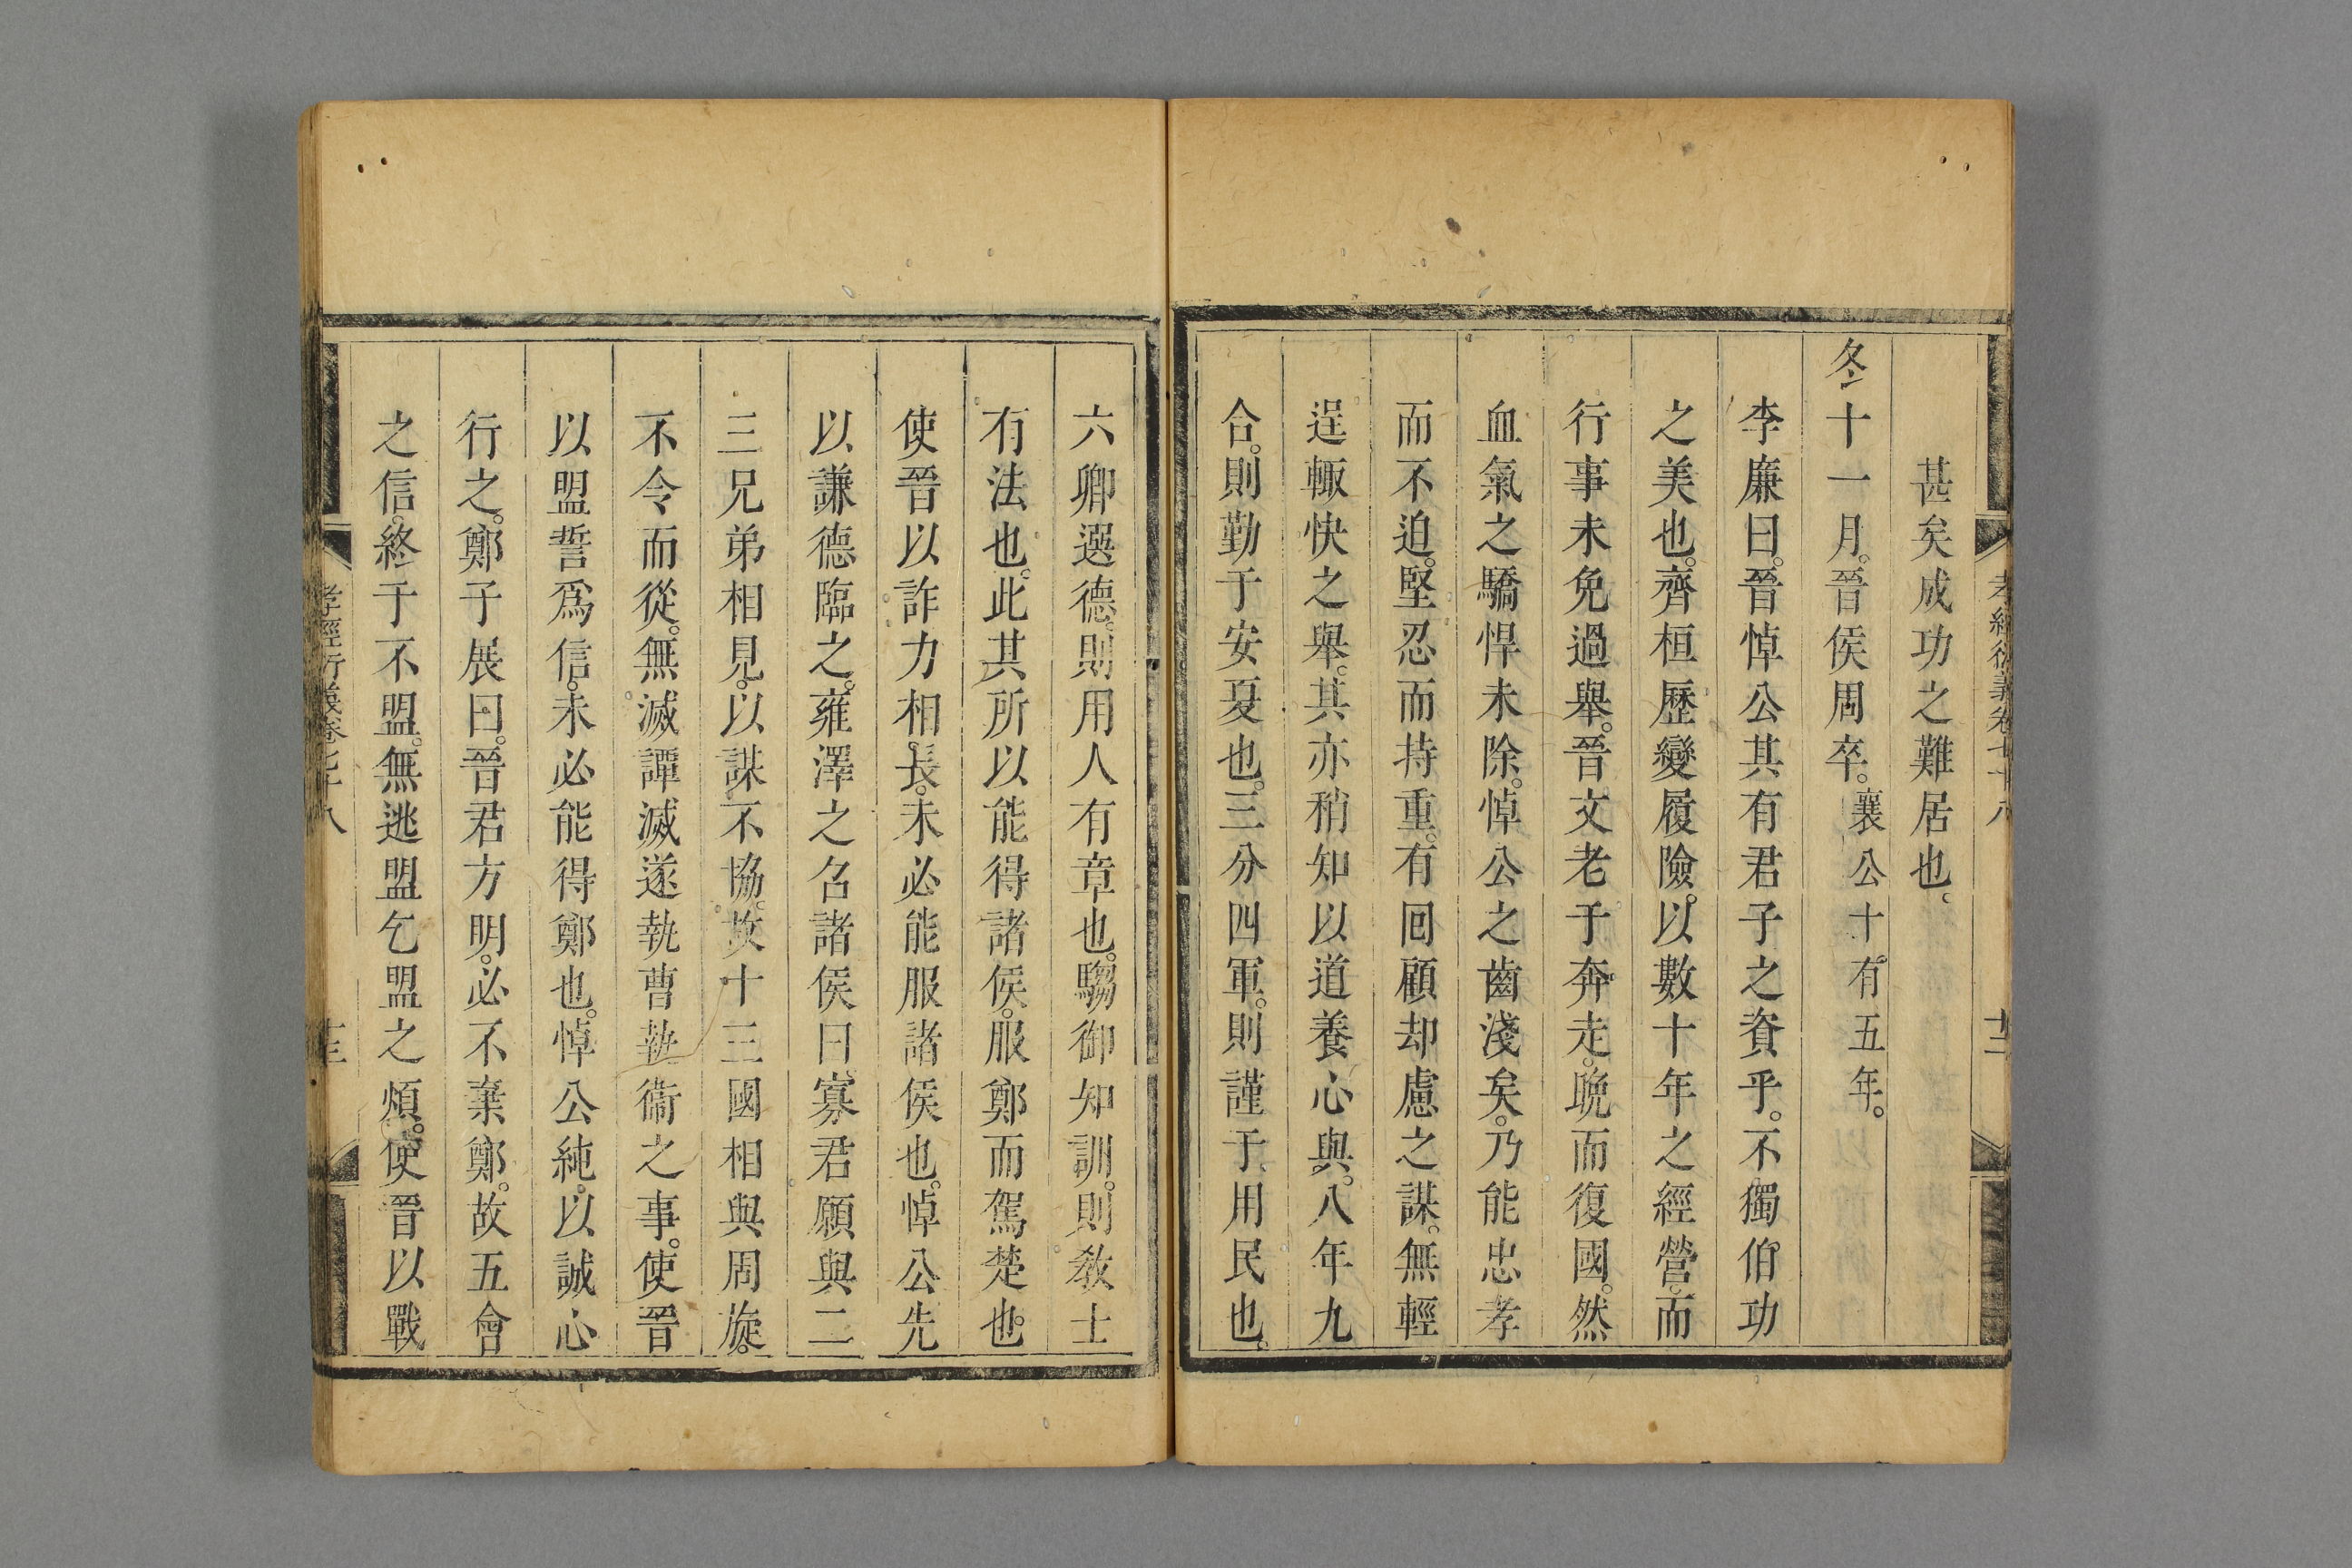 孝經衍義卷七十八 十二
甚矣成功之難居也。
冬十一月。晉侯周卒。襄公十有五年。
李廉曰。晉悼公其有君子之資乎。不獨伯功
之美也。齊桓歷變履險。以數十年之經營。而
行事未免過舉。晉文老于奔走。晚而復國。然
血氣之驕悍未除。悼公之齒淺矣。乃能忠孝
而不迫。堅忍而持重。有回顧却慮之謀。無輕
逞輙快之舉。其亦稍知以道養心與。八年九
合。則勤于安夏也。三分四軍。則謹于用民也。
六卿選德。則用人有章也。騶御知訓。則教士
有法也。此其所以能得諸侯。服鄭而駕楚也。
使晉以詐力相長。未必能服諸侯也。悼公先
以謙德臨之。雍澤之召諸侯曰寡君願與二
三兄弟相見。以謀不協。故十三國相與周旋。
不令而從。無滅譚滅遂執曹執衞之事。使晉
以盟誓爲信。未必能得鄭也。悼公純以誠心
行之。鄭子展曰。晉君方明。必不棄鄭。故五會
之信。終于不盟。無逃盟乞盟之煩。使晉以戰
孝經衍義卷七十八 十三